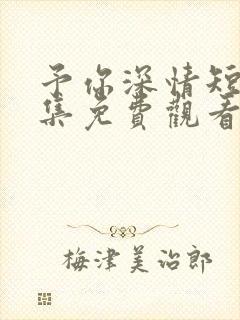 予你深情短
集免費觀看
梅津美治郎